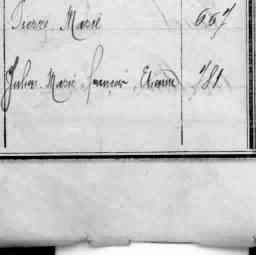 Pierre Marie 667
Julien Marie François Etienne 781